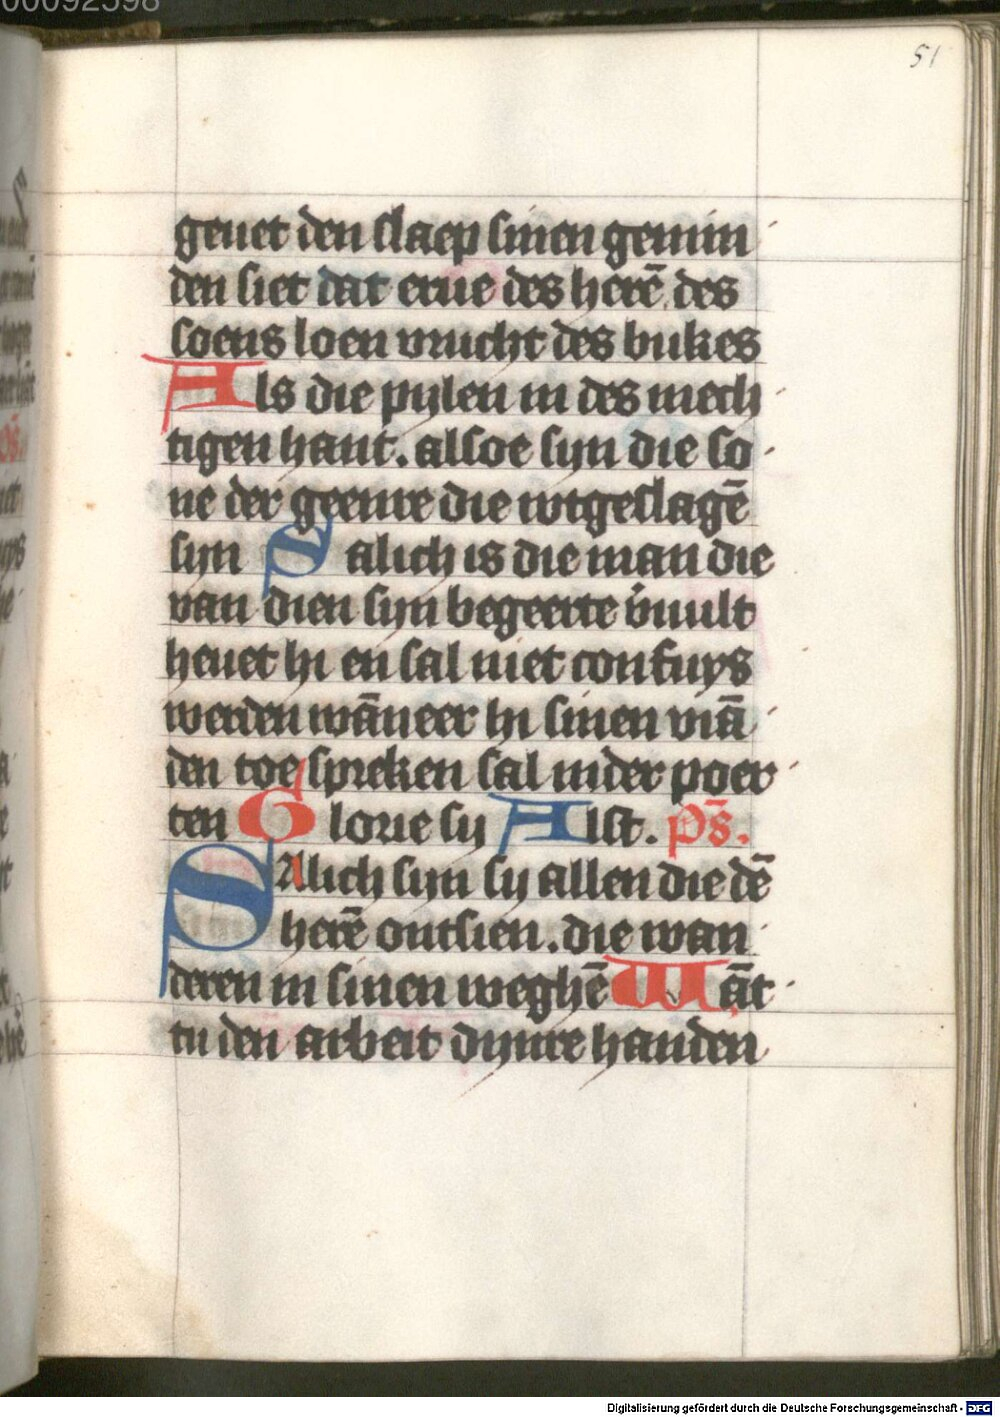 00092598
51
geuet den slaep sinen gemin
den siet dat erue des herē des
soens loen vrucht des bukes
Als die pijlen in des mech
tigen hant. alsoe sijn die so
ne der geenre die wtgeslagē
sijn Salich is die man die
van dien sijn begeerte v̄uult
heuet hi en sal niet confuys
werden wāneer hi sinen viā
den toe spreken sal inder poer
ten Glorie sij Alst. ps̄.
SAlich sijn sij allen die dē
herē ontsien. die wan
deren in sinen weghē Wāt
tu den arbeit dijnre handen
Digitalisierung gefördert durch die Deutsche Forschungsgemeinschaft - DFG